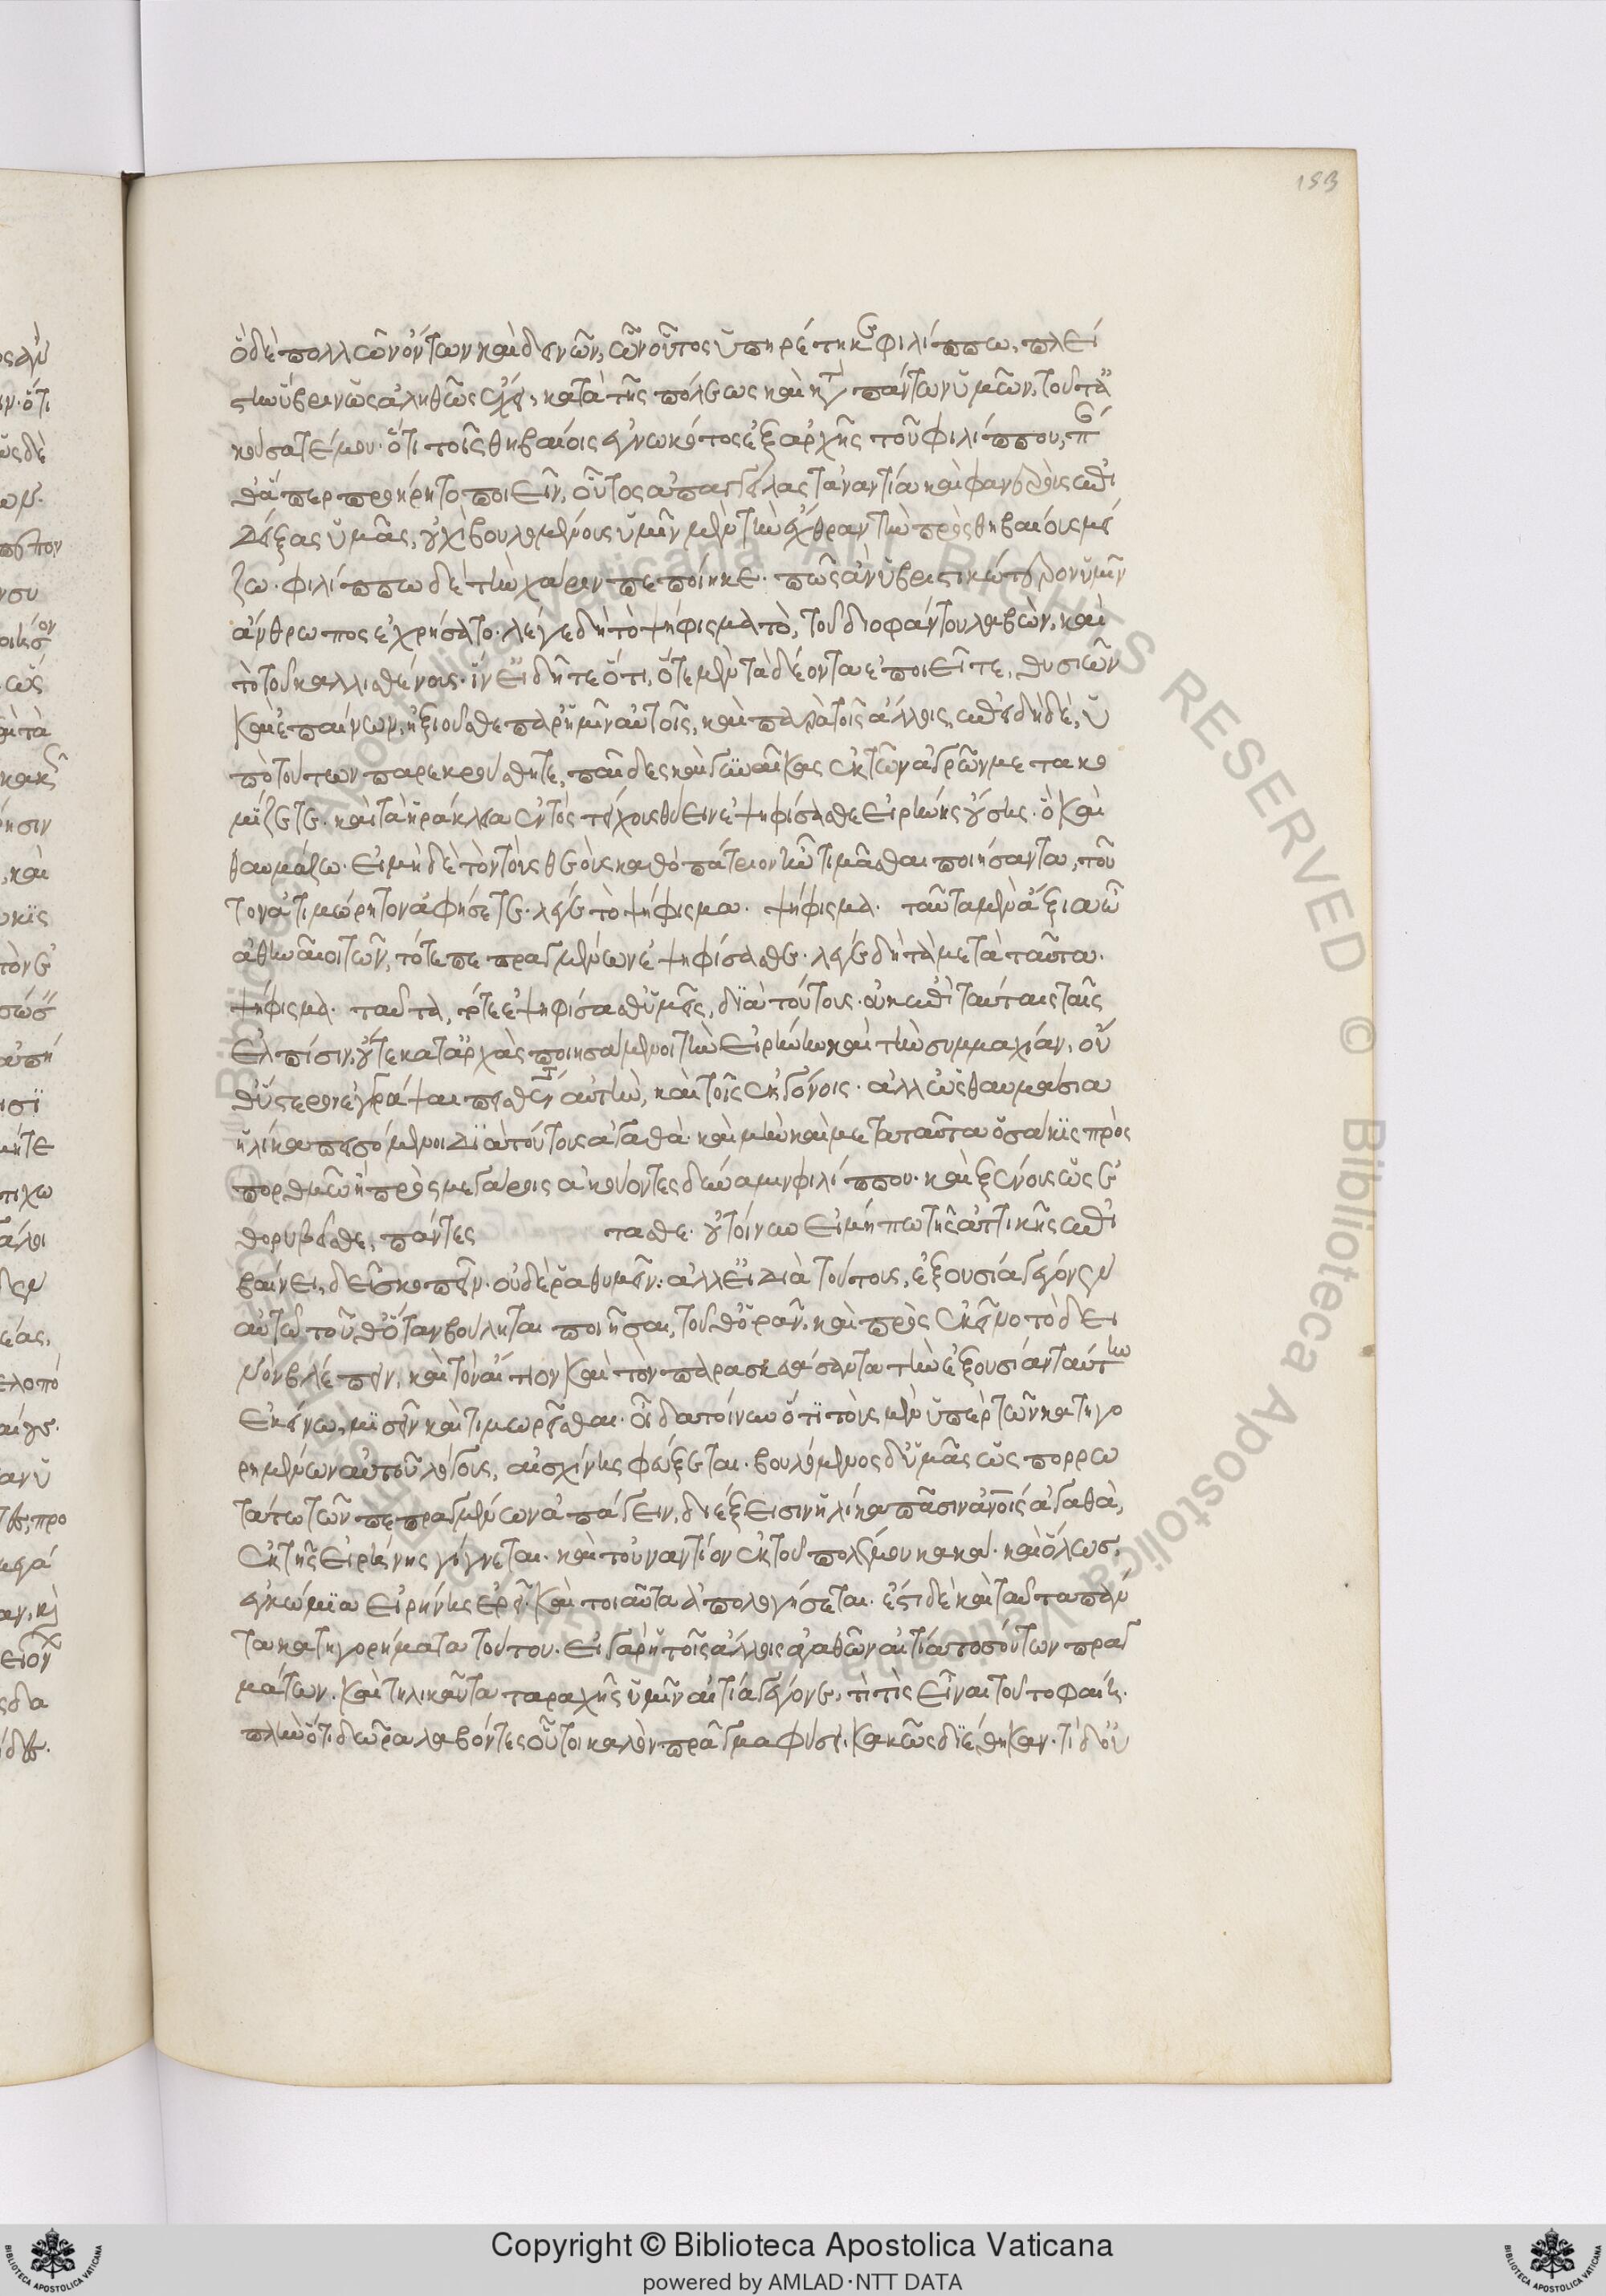 ὃ δὲ πολλῶν ὄντων καὶ δεινῶν, ὧν οὗτος ὑπηρέτηκε φιλίππω, πλεί
στην ὕβριν ὡς ἀληθῶς ἔχει, κατὰ τῆς πόλεως καὶ κατὰ πάντων ὑμῶν, τοῦτ ἀ
κούσατέ μου. ὅτι τοῖς θηβαίοις ἐγνωκότος ἐξ ἀρχῆς τοῦ φιλίππου, πάν
θ ἅπερ προήρητο ποιεῖν, οὗτος ἀπαγγείλας τἀναντία καὶ φανεροὺς ἐπι
δείξας ὑμᾶς, οὐχὶ βουλομένους ὑμῖν μὲν τὴν ἔχθραν τὴν πρὸς θηβαίους μεί
ζω. φιλίππω δὲ τὴν χάριν πεποίηκε. πῶς ἂν ὑβριστικώτερον ὑμῖν
ἄνθρωπος ἐχρήσατο. λέγε δὴ τὸ ψήφισμα τὸ, τοῦ διοφάντου λαβὼν, καὶ
τὸ τοῦ καλλισθένους. ἵν εἰδῆτε ὅτι, ὅτε μὲν τὰ δέοντα ἐποιεῖτε, θυσιῶν
καὶ ἐπαίνων, ἠξιοῦσθε παρ ὑμῖν αὐτοῖς, καὶ παρὰ τοῖς ἄλλοις, ἐπειδὴ δὲ, ὑ
πὸ τούτων παρεκρούσθητε, παῖδες καὶ γυναῖκας ἐκ τῶν ἀγρῶν μετακο
μίζετε. καὶ τὰ ἡράκλεια ἐντὸς τείχους θύειν ἐψηφίσασθε εἰρήνης οὔσης. ὃ καὶ
θαυμάζω. εἰ μηδὲ τὸν τοὺς θεοὺς καθὸ πάτριον ἦν τιμᾶσθαι ποιήσαντα, τοῦ
τον ἀτιμώρητον ἀφήσετε. λέγε τὸ ψήφισμα. ψήφισμα. ταῦτα μὲν ἄξια ὦ
ἀθηναῖοι τῶν, τότε πεπραγμένων ἐψηφίσασθε. λέγε δὴ τὰ μετὰ ταῦτα.
ψήφισμα. ταῦτα, τότε ἐψηφίσασθ ὑμεῖς, διὰ τούτους. οὐκ ἐπὶ ταύταις ταῖς
ἐλπίσιν, οὔτε κατ ἀρχὰς ποιησάμενοι τὴν εἰρήνην καὶ τὴν συμμαχίαν, οὔ
θ ὕστερον ἐγγράψαι πεισθέντ αὐτὴν, καὶ τοῖς ἐκγόνοις. ἀλλ ὡς θαυμάσια
ἡλίκα πεισόμενοι διὰ τούτους ἀγαθὰ. καὶ μὴν καὶ μετὰ ταῦτα ὁσάκις πρὸς
πορθμῶ ἢ πρὸς μεγάροις ἀκούοντες δύναμιν φιλίππου. καὶ ξένους ὡς ἐ
θορυβεῖσθε, πάντες τασθε. οὐ τοίνυν εἰ μήπω τῆς ἀττικῆς ἐπι
βαίνει, δεῖ σκοπεῖν. οὐδὲ ῥαθυμεῖν. ἀλλ εἰ διὰ τούτους, ἐξουσία γέγονεν
αὐτῶ τοῦθ ὅταν βούληται ποιῆσαι, τοῦθ ὁρᾶν. καὶ πρὸς ἐκεῖνο τὸ δει
νὸν βλέπειν, καὶ τὸν αἴτιον καὶ τὸν παρασκευάσαντα τὴν ἐξουσίαν ταύτην
ἐκείνω, μισεῖν καὶ τιμωρεῖσθαι. οἶδα τοίνυν ὅτι τοὺς μὲν ὑπὲρ τῶν κατηγο
ρημένων αὐτοῦ λόγους, αἰσχίνης φεύξεται. βουλόμενος δ ὑμᾶς ὡς πορρω
τάτω τῶν πεπραγμένων ἀπάγειν, διέξεισιν ἡλίκα πᾶσιν ἀνοις ἀγαθὰ,
ἐκ τῆς εἰρήνης γίγνεται. καὶ τοὐναντίον ἐκ τοῦ πολέμου κακά. καὶ ὅλως,
ἐγκώμια εἰρήνης ἐρεῖ. καὶ τοιαῦτα ἀπολογήσεται. ἔστι δὲ καὶ ταῦτα πάν
τα κατηγορήματα τούτου. εἰ γὰρ ἡ τοῖς ἄλλοις ἀγαθῶν αἰτία τοσούτων πραγ
μάτων. καὶ τηλικαῦτα ταραχῆς ὑμῖν αἰτία γέγονε, τί τις εἶναι τοῦτο φαίη.
πλὴν ὅτι δῶρα λαβόντες οὗτοι καλὸν πρᾶγμα φύσει. κακῶς διέθηκαν. τί δ οὐ